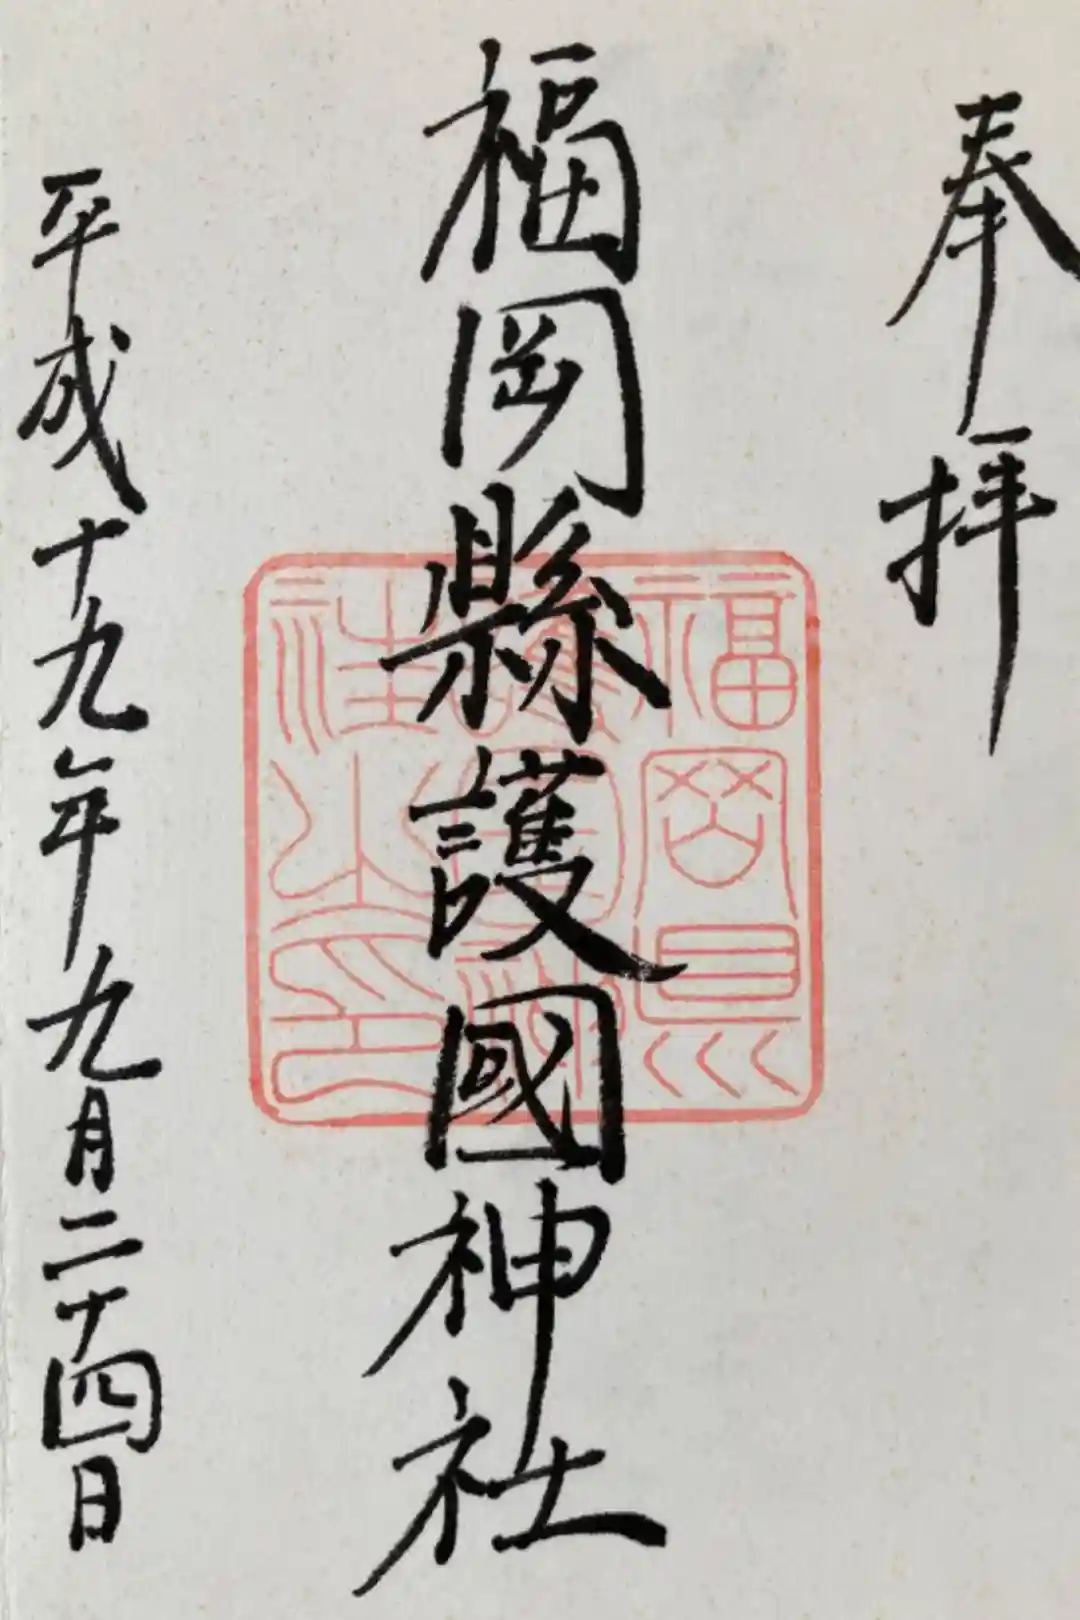 奉拝
福岡縣護國神社
平成十九年九月二十四日
福岡県
護国神
社之印